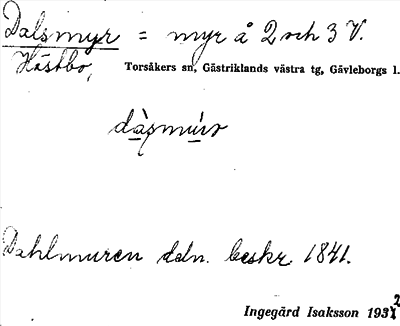 Dalsmyr = myr å 2 och 3 V.
Hästbo, Torsåkers sn, Gästriklands västra tg, Gävleborgs l.
Dahlmuren ddn. beskr. 1841.
Ingegärd Isaksson 1932